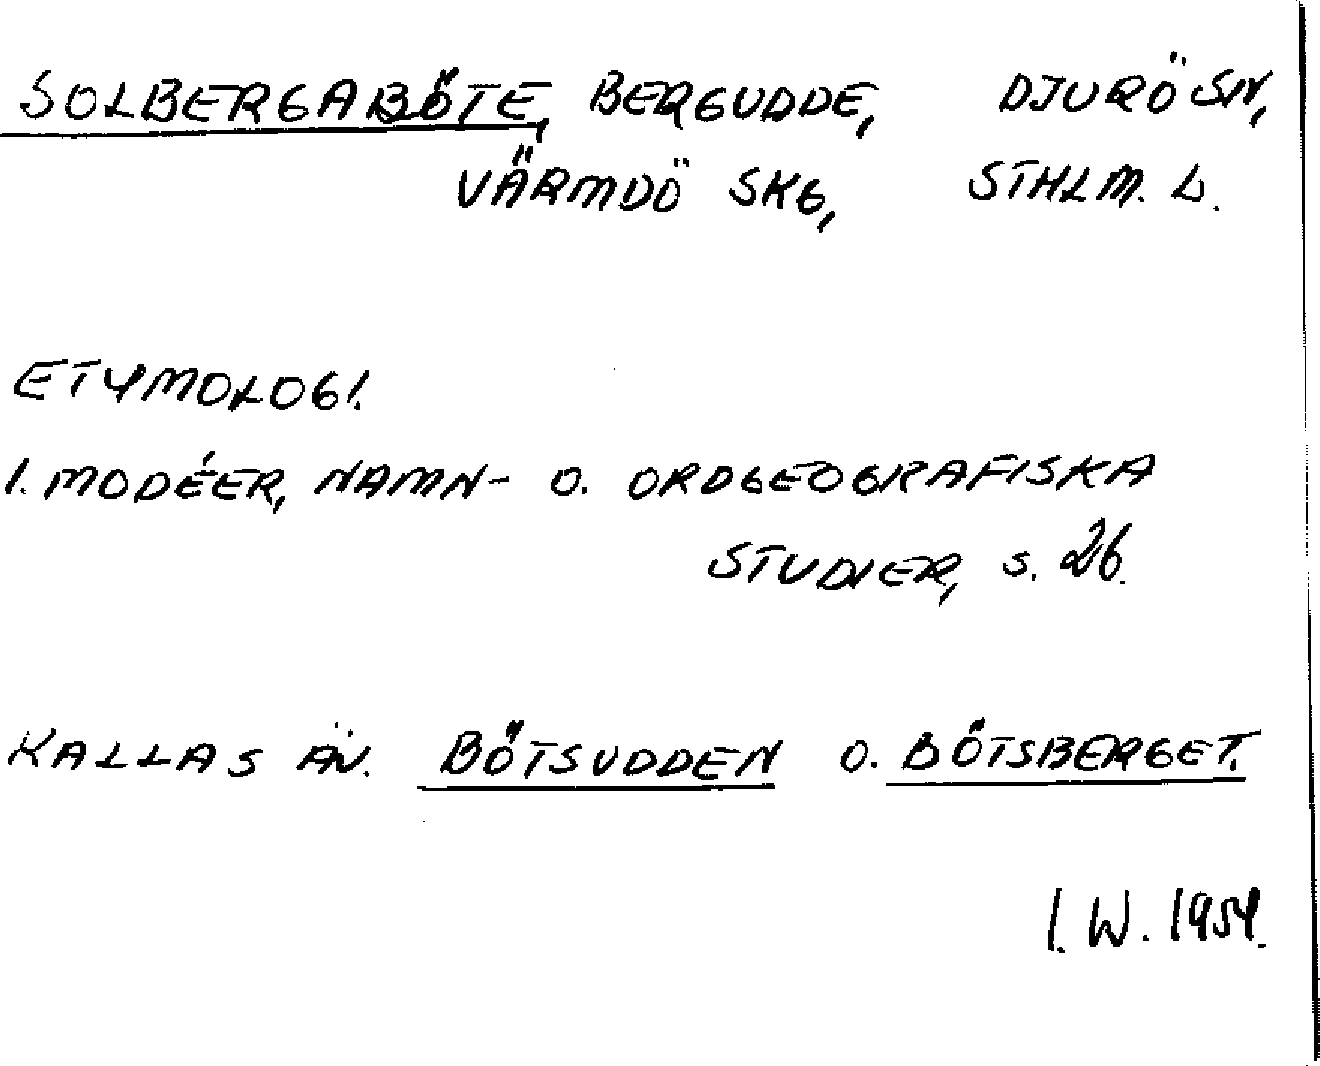 SOLBERGABÖTE, BERGUDDE, DJURÖ SN,
VÄRMDÖ SKG, STHLM. L.
ETYMOLOGI.
I. MODÉER, NAMN- O. ORDGEOGRAFISKA
STUDIER, S. 26.
KALLAS ÄV. BÖTSUDDEN O. BÖTSBERGET.
I. W. 1954.